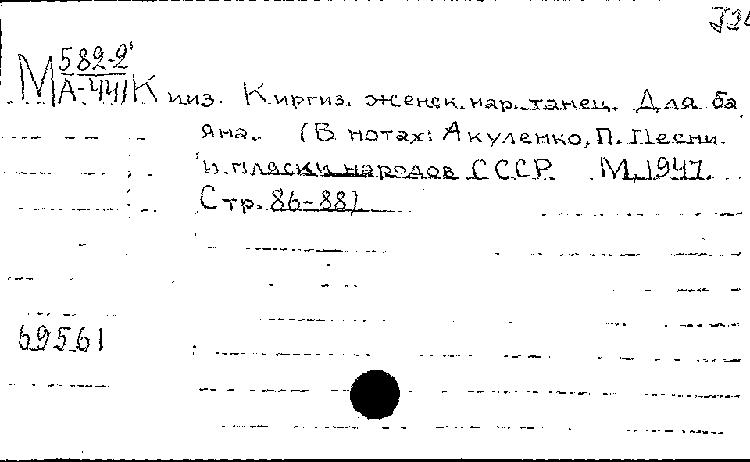 582-2
М А-441 Кииз. Киргиз. женск. нар. танец. Для ба
яна. (В нотах: Акуленко, П. Песни
и пляски народов СССР. М., 1947.
Стр. 86-88)
69561